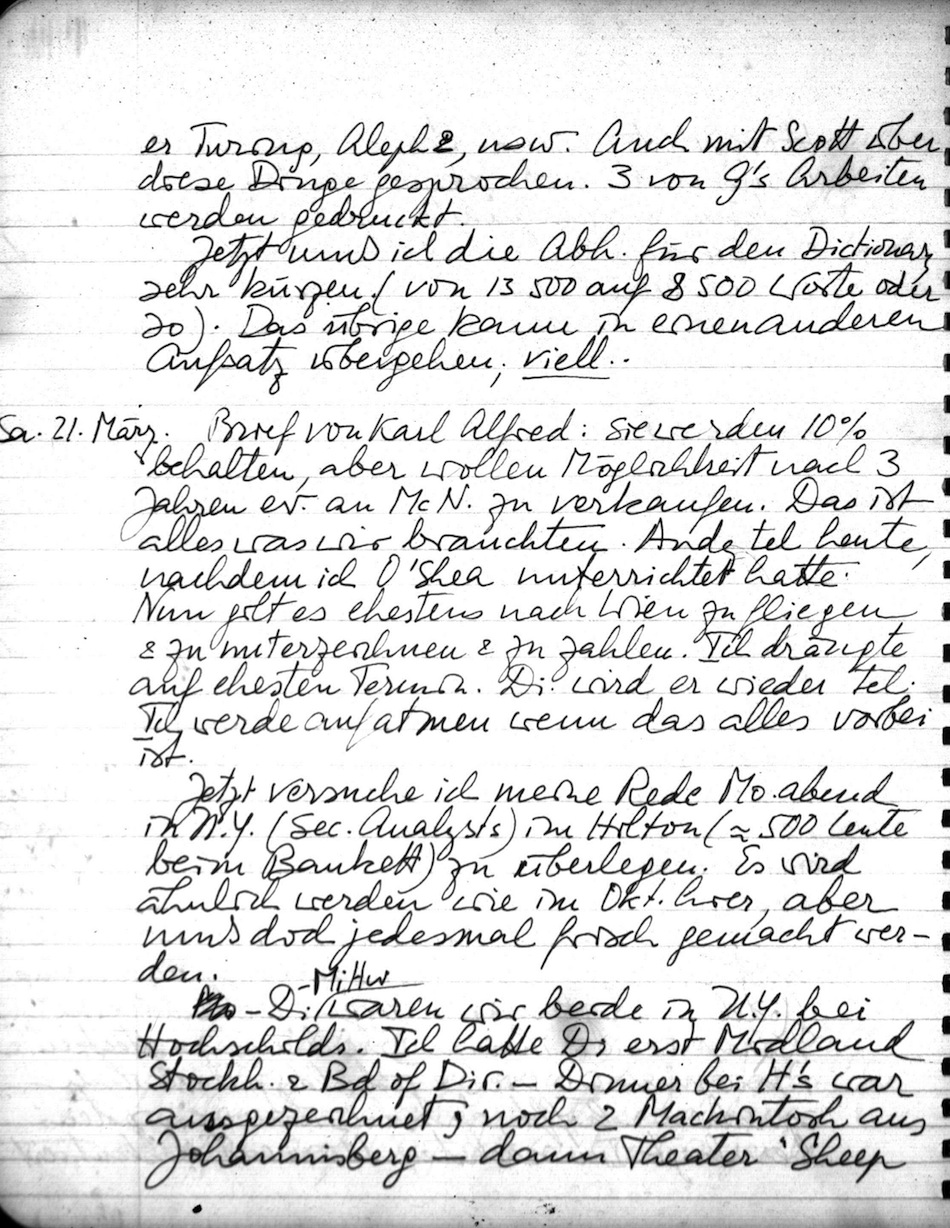 er Turing, Aleph 2, usw. Auch mit Scott über
diese Dinge gesprochen. 3 von G's Arbeiten
werden gedruckt.
Jetzt muß ich die Abh. für den Dictionary
sehr kürzen! (von 13 500 auf 8 500 Worte oder
so). Das übrige kann in einen anderen
Aufsatz übergehen, viell..
Sa. 21. März. Brief von Karl Alfred: sie werden 10%
behalten, aber wollen Möglichkeit nach 3
Jahren ev. an McN. zu verkaufen. Das ist
alles was wir brauchten. Ande tel heute,
nachdem ich O'Shea unterrichtet hatte.
Nun gilt es ehestens nach Wien zu fliegen
& zu unterzeichnen & zu zahlen. Ich drängte
auf ehesten Termin. Di. wird er wieder tel.
Ich werde aufatmen wenn das alles vorbei
ist.
Jetzt versuche ich meine Rede Mo. abend
in N.Y. (Sec. Analysts) im Hilton (≈ 500 Leute
beim Bankett) zu überlegen. Es wird
ähnlich werden wie im Okt. hier, aber
muß doch jedesmal frisch gemacht wer-
den.
– Di. – Mittw waren wir beide in N.Y. bei
Hochschilds. Ich hatte Di erst Midland
Stockh. & Bd of Dir. – Dinner bei H's war
ausgezeichnet, noch 2 Mackintosh aus
Johannisberg – dann Theater 'Sheep